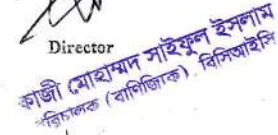 Director
কাজী মোহাম্মদ সাইফুল ইসলাম
পরিচালক (বাণিজ্যিক) বিসিআইসি